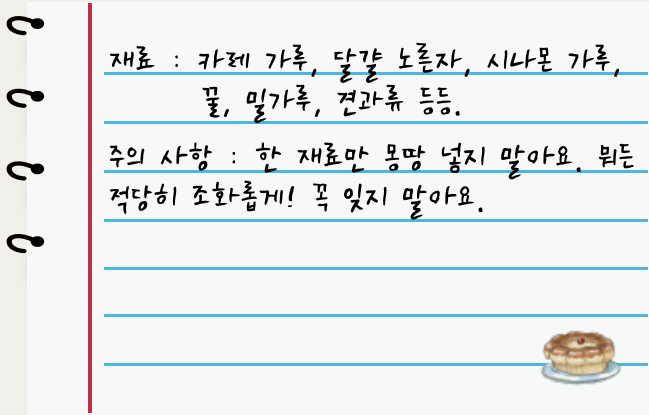 재료 : 카레 가루, 달걀 노른자, 시나몬 가루,
꿀, 밀가루, 견과류 등등.
주의 사항 : 한 재료만 몽땅 넣지 말아요. 뭐든
적당히 조화롭게! 꼭 잊지 말아요.